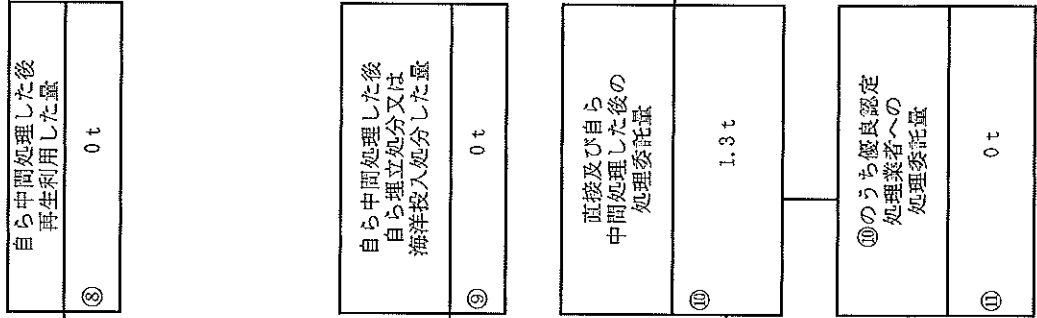 自ら中間処理した後
再生利用した量
⑧
0 t
自ら中間処理した後
自ら埋立処分又は
海洋投入処分した量
⑨
0 t
直接及び自ら
中間処理した後の
処理委託量
⑩
1.3 t
⑩のうち優良認定
処理業者への
処理委託量
⑪
0 t